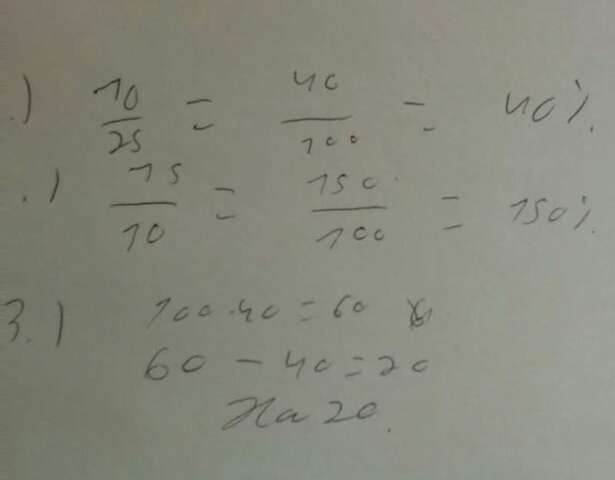 .) 10/25 = 40/100 = 40%.
.) 15/10 = 150/100 = 150%.
3.) 100-40=60
60 - 40=20
На 20.